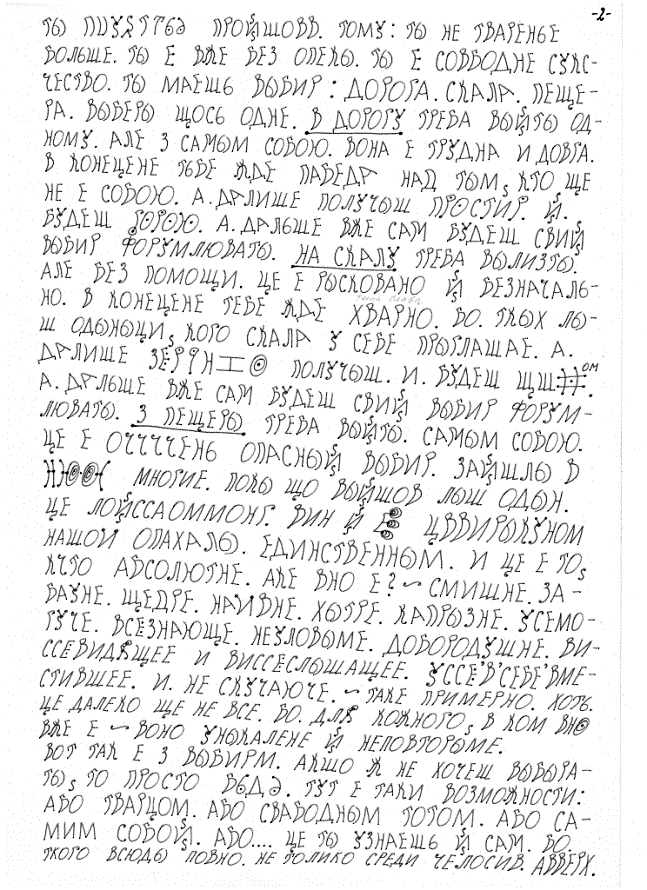 -2-
ТЫ ПРОЙШОВВ. ТОМУ: ТЫ НЕ ТВАРЕНЬЕ
БОЛЬШЕ. ТЫ Е ВЖЕ БЕЗ ОПЕКЫ. ТЫ Е СОВВОДНЕ СУЖС-
ЧЕСТВО. ТЫ МАЕШЬ ВЫБИР: ДОРОГА. СКАЛА. ПЕЩЕ-
РА. ВЫБЕРЫ ЩОСЬ ОДНЕ. В ДОРОГУ ТРЕБА ВЫЙТЫ ОД-
НОМУ. АЛЕ З САМЫМ СОБОЮ. ВОНА Е ТРУДНА И ДОВГА.
В КОНЕЦЕНЕ ТЬБЕ ЖДЕ ПАБЕДА НАД ТЫМ, КТО ЩЕ
НЕ Е СОБОЮ. А. ДАЛИШЕ ПОЛУЧЫШ ПРОСТИР. Й.
БУДЕШ ГОРОЮ. А. ДАЛЬШЕ ВЖЕ САМ БУДЕШ СВИЙ
ВЫБИР ФОРУМЛЮВАТЫ. НА СКАЛУ ТРЕБА ВЫЛИЗТЫ.
АЛЕ БЕЗ ПОМОЩИ. ЦЕ Е РЫСКОВАНО Й БЕЗНАЧАЛЬ-
НО. В КОНЕЦЕНЕ ТЕБЕ ЖДЕ ХВАРНО. БО. ТКЫХ ЛЫ-
Ш ОДЫНЫЦИ, КОГО СКАЛА У СЕБЕ ПРЫГЛАШАЕ. А.
ДАЛИШЕ ПОЛУЧЫШ. И. БУДЕШ ЩШ ОМ.
А. ДАЛЬШЕ ВЖЕ САМ БУДЕШ СВИЙ ВЫБИР ФОРУМ-
ЛЮВАТЫ. З ПЕЩЕРЫ ТРЕБА ВЫЙТЫ. САМЫМ СОБОЮ.
ЦЕ Е ОЧЧЧЧЕНЬ ОПАСНЫЙ ВЫБИР. ЗАЙШЛЫ В
МНОГИЕ. ПОКЫ ЩО ВЫЙШОВ ЛЫШ ОДЫН.
ЦЕ ЛОЙССАОММОНГ. ВИН Й Е ЦВВИРЫКУНОМ
НАШОИ ОПАХАЛЫ. ЕДИНСТВЕННЫМ. И ЦЕ Е ТО,
КЧТО АБСОЛЮТНЕ. АКЕ ВНО Е? ~ СМИШНЕ. ЗА-
БАУНЕ. ЩЕДРЕ. НАИВНЕ. ХЫТРЕ. КАПРЫЗНЕ. УСЕМО-
ГУЧЕ. ВСЕЗНАЮЩЕ. НЕУЛОВЫМЕ. ДОБОРОДУШНЕ. ВИ-
ССЕВИДЯЩЕЕ И ВИССЕСЛЫШАЩЕЕ. УССЕ'В'СЕБЕ'ВМЕ-
СТИВШЕЕ. И. НЕ СКУЧАЮЧЕ. ~ ТАКЕ ПРИМЕРНО. ХОТЬ.
ЦЕ ДАЛЕКО ЩЕ НЕ ВСЕ. БО. ДЛЯ КОЖНОГО, В КОМ ВНО
ВЖЕ Е ~ ВОНО УНЫКАЛЕНЕ Й НЕПОВТОРЫМЕ.
ВОТ ТАК Е З ВЫБИРМ. АКШО Ж НЕ ХОЧЕШ ВЫБЫРА-
ТЫ, ТО ПРОСТО. ТУТ Е ТАКИ ВОЗМОЖНОСТИ:
АБО ТВАРЦОМ. АБО СВАБОДНЫМ ТОТОМ. АБО СА-
МИМ СОБОЙ. АБО.... ЦЕ ТЫ УЗНАЕШЬ Й САМ. БО.
ТКОГО ВСЮДЫ ПОВНО. НЕ ТОЛИКО СРЕДИ ЧЕЛОСИВ. АВВЕРХ.